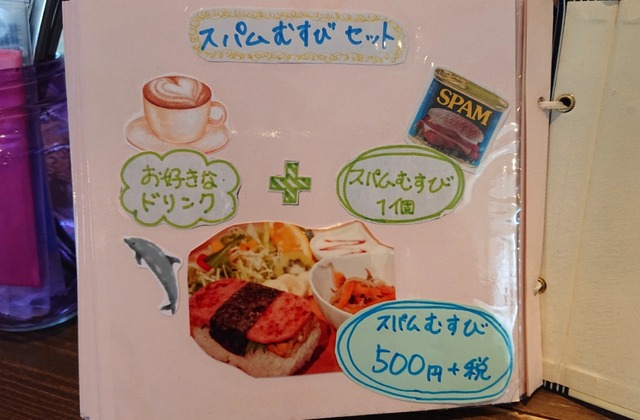 スパムむすびセット
SPAM
お好きな
ドリンク
スパムむすび
1個
スパムむすび
500円+税